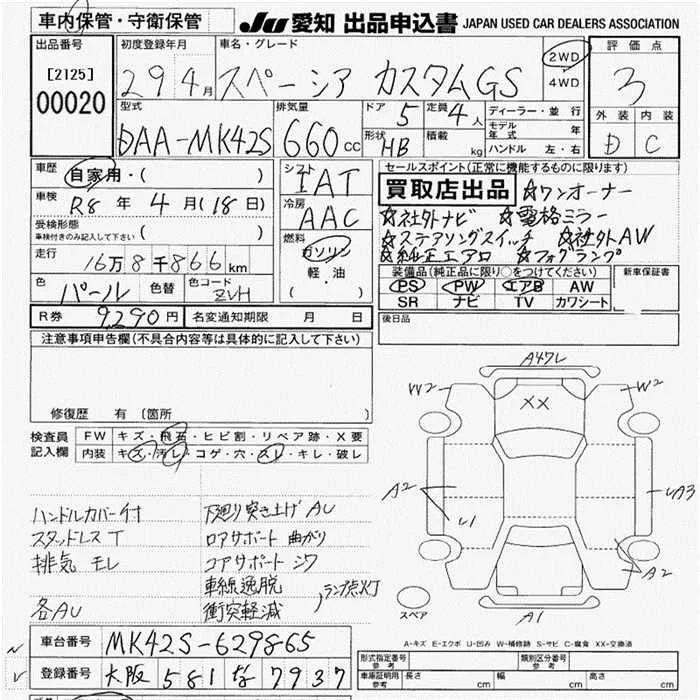 車内保管・守衛保管
JU 愛知 出品申込書 JAPAN USED CAR DEALERS ASSOCIATION
出品番号
[2125]
00020
初度登録年月
29 4月
車名・グレード
スペーシア カスタムGS
2WD
4WD
評価点
3
外装 内装
D C
型式
DAA-MK42S
排気量
660cc
ドア
5
定員
4人
形状
HB
積載
kg
ディーラー・並行
モデル年式 年
ハンドル 左・右
車歴
自家用・( )
車検
R8 年 4 月(18日)
受検形態
車検付きのみ記入して下さい ( )
走行
16万8千866km
色
パール
色替
色コード
ZVH
シフト
IAT
冷房
AAC
燃料
ガソリン
軽・油
( )
セールスポイント(正常に機能するものに限ります)
買取店出品 ☆ワンオーナー
☆社外ナビ ☆電格ミラー
☆ステアリングスイッチ ☆社外AW
☆純正エアロ ☆フォグランプ
装備品(純正品に限り○をつけてください)
PS PW エアB AW
SR ナビ TV カワシート
新車保証書
後日品
R券 9,290円
名変通知期限 月 日
注意事項申告欄(不具合内容等は具体的に記入して下さい)
修復歴 有 (箇所 )
検査員記入欄
FW キズ・飛石・ヒビ割・リペア跡・X要
内装 キズ・汚レ・コゲ・穴・スレ・キレ・破レ
ハンドルカバー付
スタッドレス T
排気 モレ
各AU
下廻り突き上げ AU
ロアサポート 曲がり
コアサポート シワ
車線逸脱
衝突軽減
ランプ点灯
A47L
W2
W2
XX
A2
U1
UA3
A2
A1
スペア
A-キズ E-エクボ U-凹み W-補修跡 S-サビ C-腐食 XX-交換済
車台番号 MK42S-629865
登録番号 大阪 581 な 7937
型式指定番号 参考
類別区分番号 参考
車庫証明用 参考 長さ cm 幅 cm 高さ cm